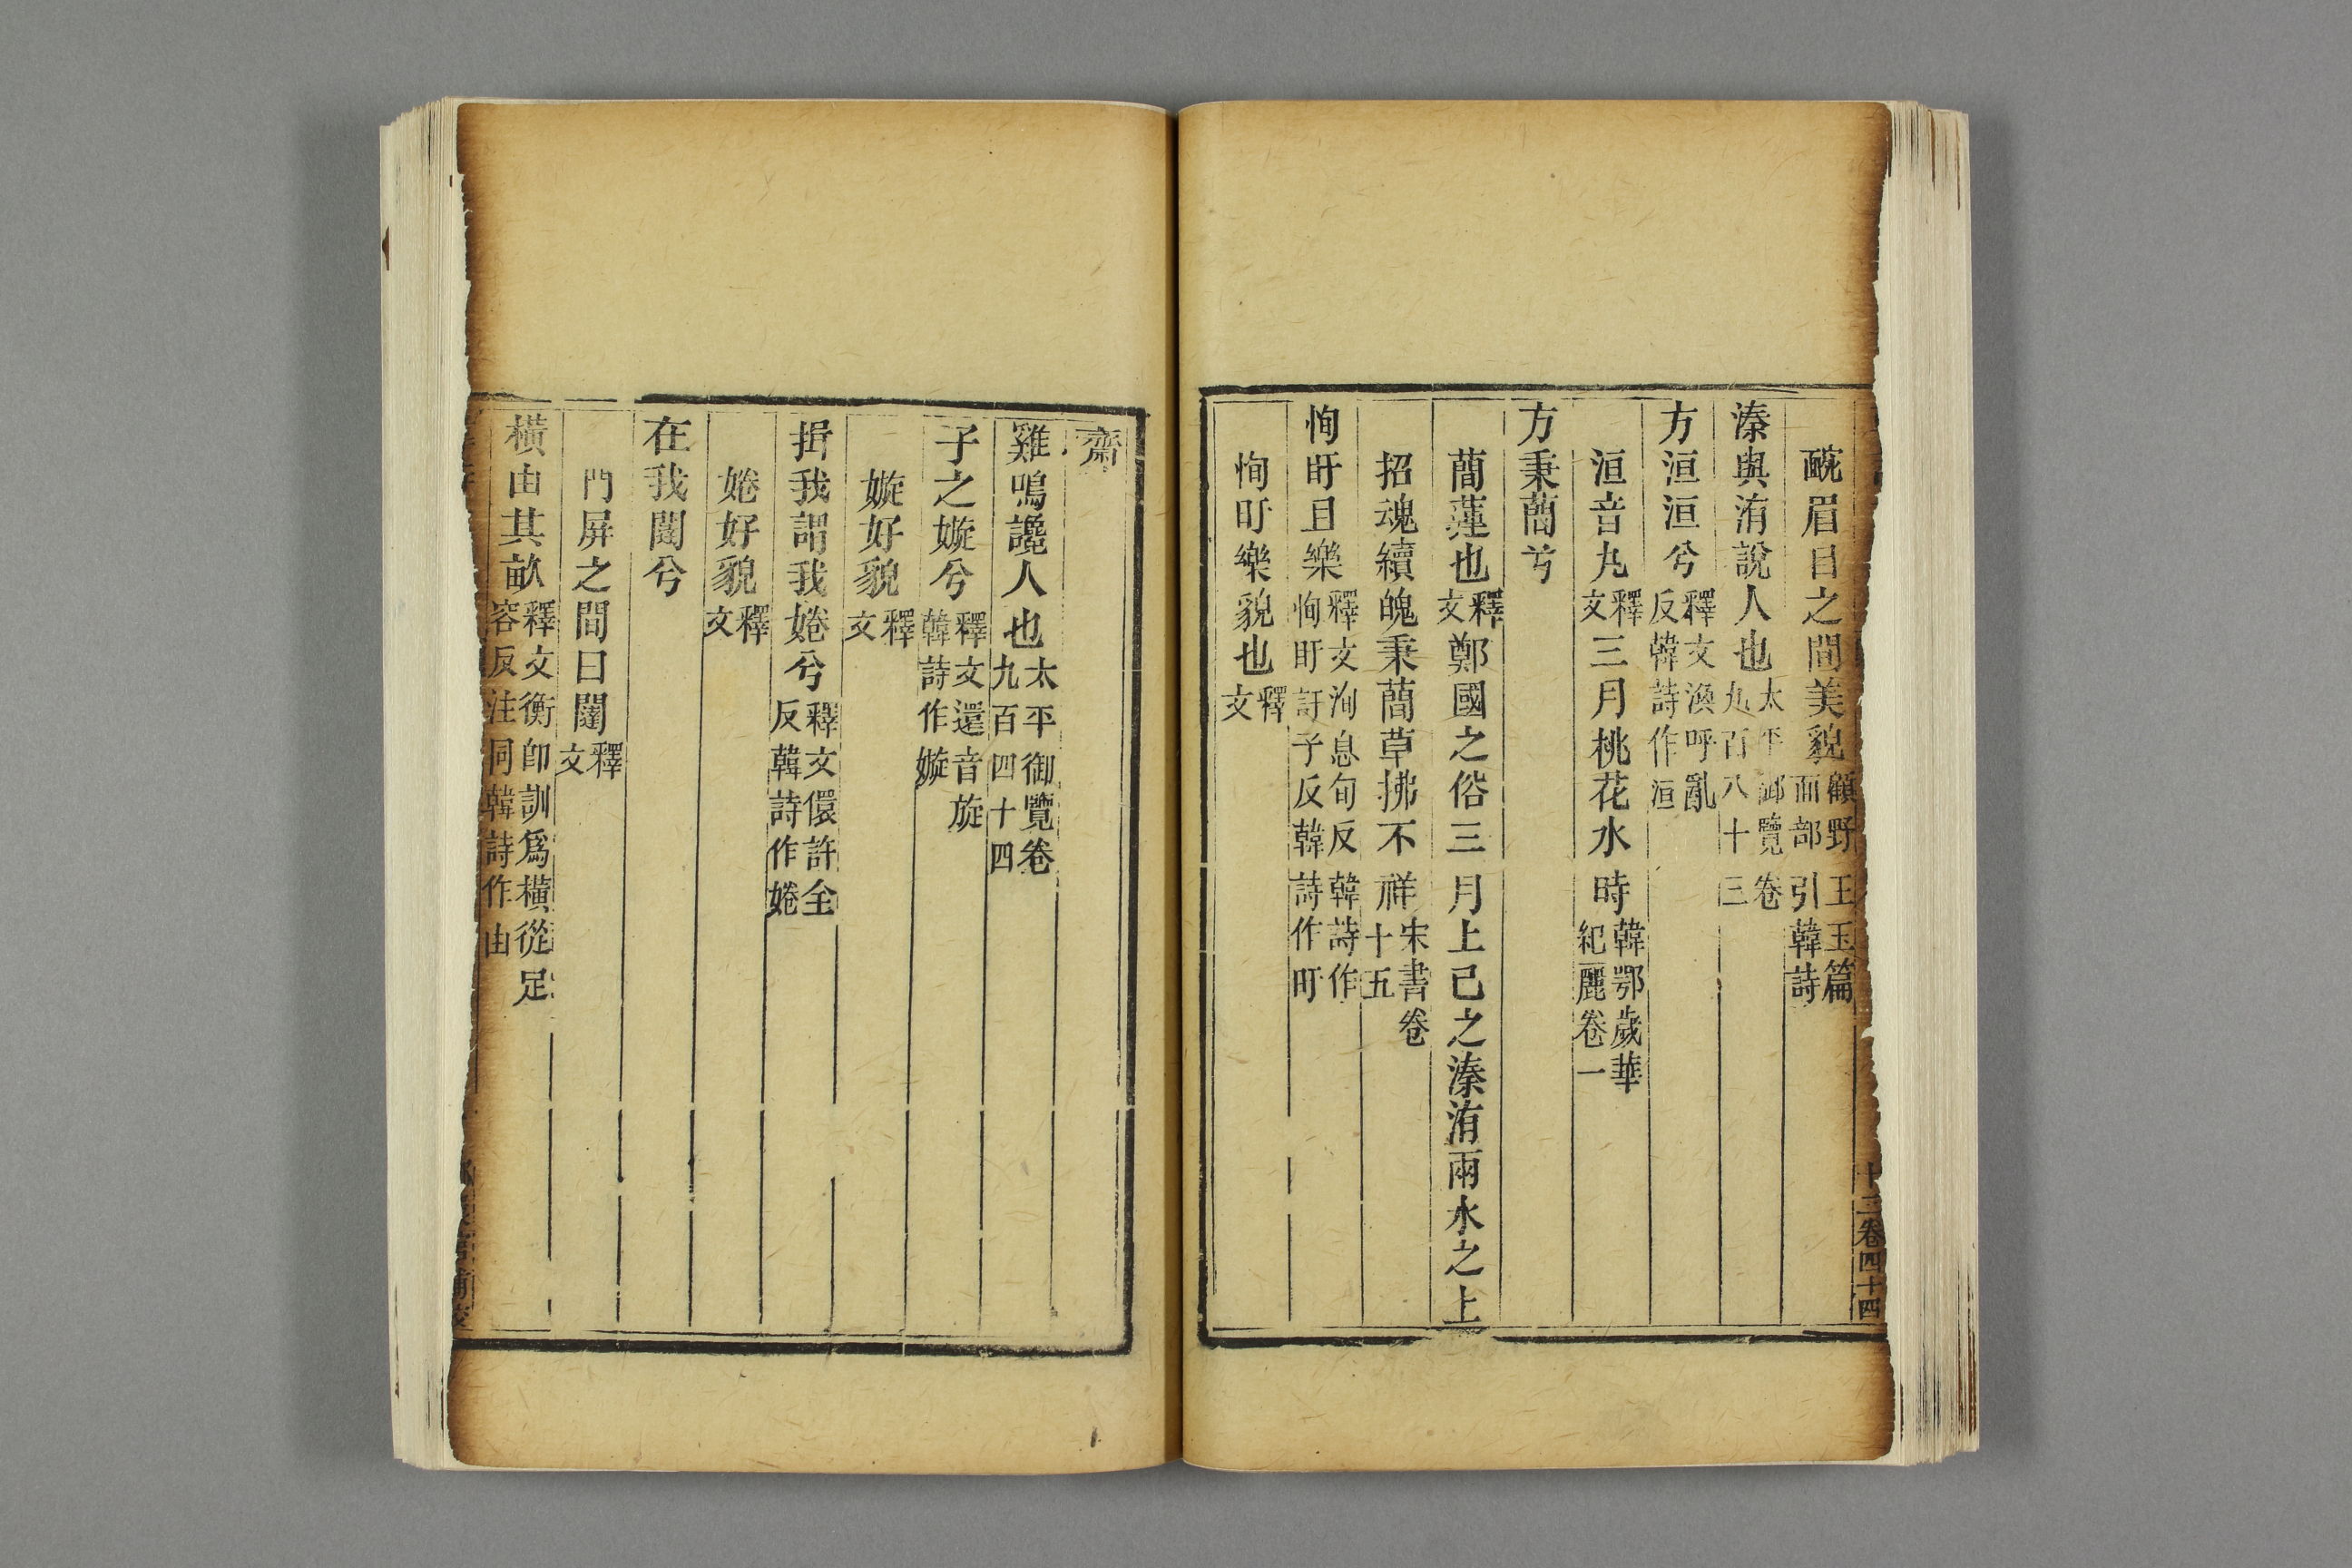 䩊眉目之間美貌顧野王玉篇面部引韓詩
溱與洧說人也太平御覽卷九百八十三
方洹洹兮釋文渙呼亂反韓詩作洹
洹音丸釋文三月桃花水時韓鄂歲華紀麗卷一
方秉蕑兮
蕑蓮也釋文鄭國之俗三月上巳之溱洧兩水之上
招魂續魄秉蕑草拂不祥宋書卷十五
恂盱且樂釋文洵息旬反韓詩作恂盱訏子反韓詩作盱
恂盱樂貌也釋文
十三卷四十四
齋
雞鳴讒人也太平御覽卷九百四十四
子之嫙兮釋文還音旋韓詩作嫙
嫙好貌釋文
揖我謂我婘兮釋文儇許全反韓詩作婘
婘好貌釋文
在我闥兮
門屏之間曰闥釋文
橫由其畝釋文衡卽訓爲橫從足容反注同韓詩作由